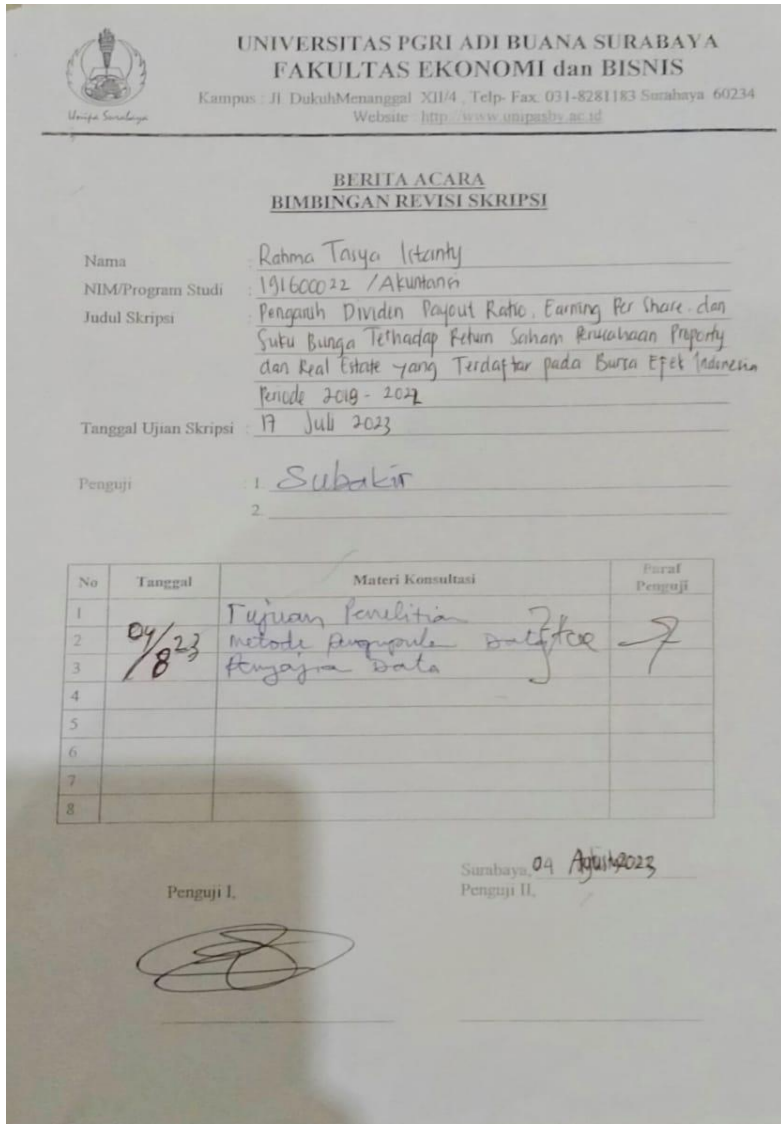 UNIVERSITAS PGRI ADI BUANA SURABAYA
FAKULTAS EKONOMI dan BISNIS
Kampus : Jl. DukuhMenanggal XII/4 , Telp- Fax. 031-8281183 Surabaya 60234
Website : http://www.unipasby.ac.id
Unipa Surabaya
BERITA ACARA
BIMBINGAN REVISI SKRIPSI
Nama : Rahma Tasya Istanty
NIM/Program Studi : 191600022 / Akuntansi
Judul Skripsi : Pengaruh Dividen Payout Ratio, Earning Per Share dan
Suku Bunga Terhadap Return Saham Perusahaan Property
dan Real Estate yang Terdaftar pada Bursa Efek Indonesia
Periode 2019 - 2022
Tanggal Ujian Skripsi : 17 Juli 2023
Penguji : 1 Subakir
2
No Tanggal Materi Konsultasi Paraf Penguji
1 Tujuan Penelitian
2 04/8 23 Metode Data
3 Data
4
5
6
7
8
Surabaya, 04 Agustus 2023
Penguji I, Penguji II,